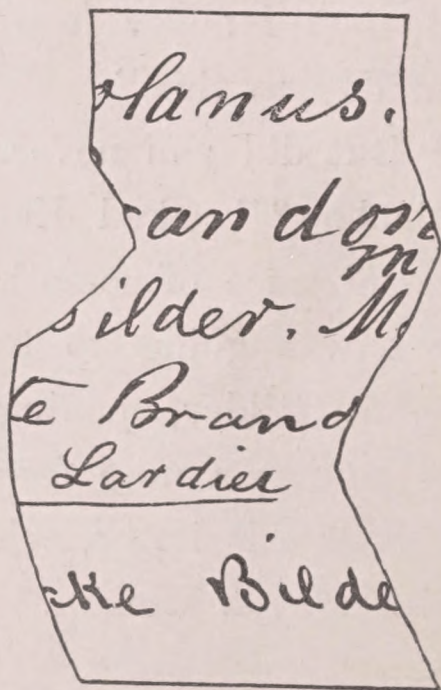 olanus.
randon
m
Bilder. M.
te Brand
Lardier
cke Bilde